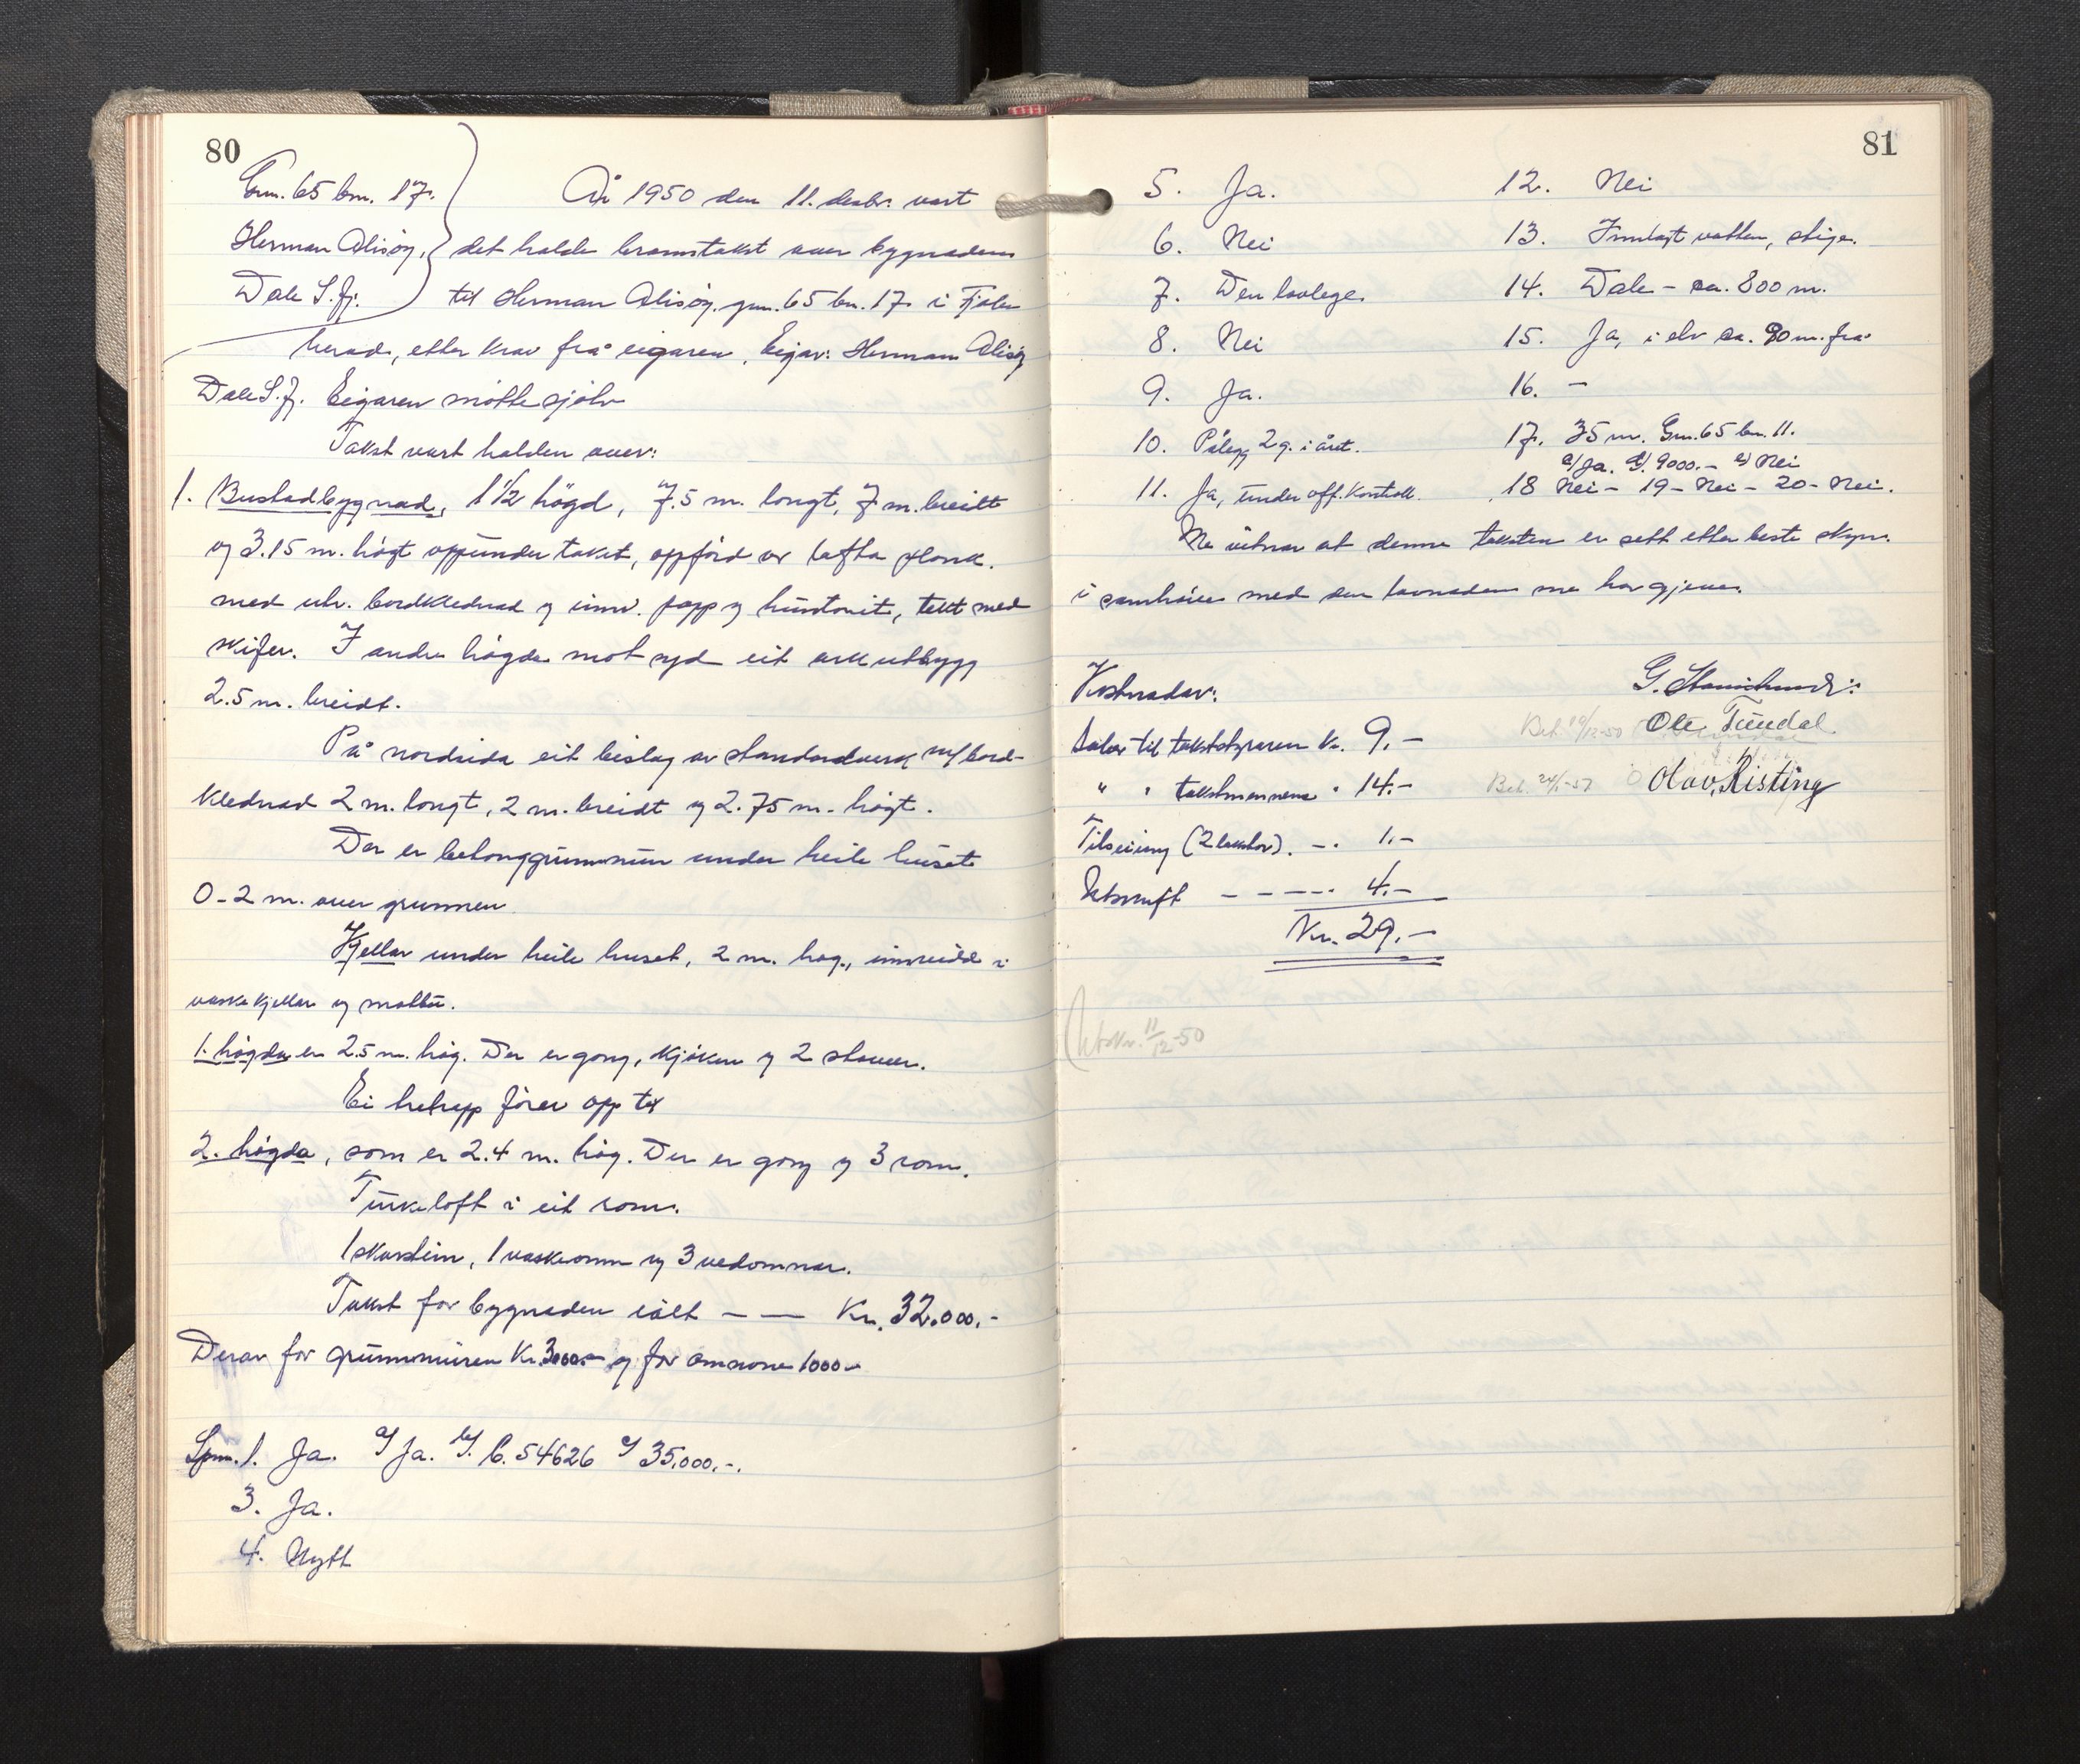 80
Gnr. 65 bnr. 17.
Herman Alisøy,
Dale S.fj.
År 1950 den 11. desbr. vart
det halde branntakst over bygnadene
til Herman Alisøy. gnr. 65 bn. 17 i Fjaler
herad, etter krav frå eigaren. Eigar: Herman Alisøy
Dale S.fj. Eigaren møtte sjølv
Takst vart halden over:
1. Bustadbygnad, 1 1/2 högd, 7.5 m. langt, 7 m. breidt
og 3.15 m. högt oppunder taket, oppförd av lafta plank.
med utv. bordklednad og innv. papp og huntonit, tekt med
skifer. I andre högda mot syd eit ark utbygg
2.5 m. breidt.
På nordsida eit bislag av standardverk m/ bord-
klednad 2 m. langt, 2 m. breidt og 2.75 m. högt.
Der er betonggrunnmur under heile huset
0-2 m. over grunnen
Kjellar under heile huset, 2 m. høg., innreidd i
vaskekjellar og matbu.
1. högda er 2.5 m. hög. Der er gang, kjöken og 2 stover.
Ei tretrapp förer opp til
2. högda, som er 2.4 m. hög. Der er gang og 3 rom.
Turkeloft i eit rom.
1 skorstein, 1 vaskeomn og 3 vedomnar.
Takst for bygnaden ialt — — Kr. 32.000.-
Derav for grunnmuren Kr. 3000.- og for omnane 1000.-
Spm. 1. Ja. a/ Ja. b/. C. 54626 c/ 35.000.-.
3. Ja.
4. Nytt
81
5. Ja.
6. Nei
7. Den lovlege.
8. Nei
9. Ja.
10. Pålegg 2 g. i året.
11. Ja, under off. kontroll.
12. Nei
13. Innlagt vatten, stige.
14. Dale - ca. 800 m.
15. Ja, i elv ca. 90 m. frå
16. -
17. 35 m. Gnr. 65 bn. 11.
a/ Ja. d/ 9000.- e/ Nei
18 Nei - 19 - Nei - 20 - Nei.
Me vitnar at denne taksten er sett etter beste skjøn.
i samhøve med den lovnaden me har gjeve.
Kostnadar:
Salær til takststyraren Kr. 9.-
" " takstmennene " 14.-
Tilseiing (2 takstar). -. 1.-
Utskrift - - - - -. 4.-
Kr. 29.-
Bet. 19/12-50 Ole Tundal
Olav Risting
Utskr. 11/12-50